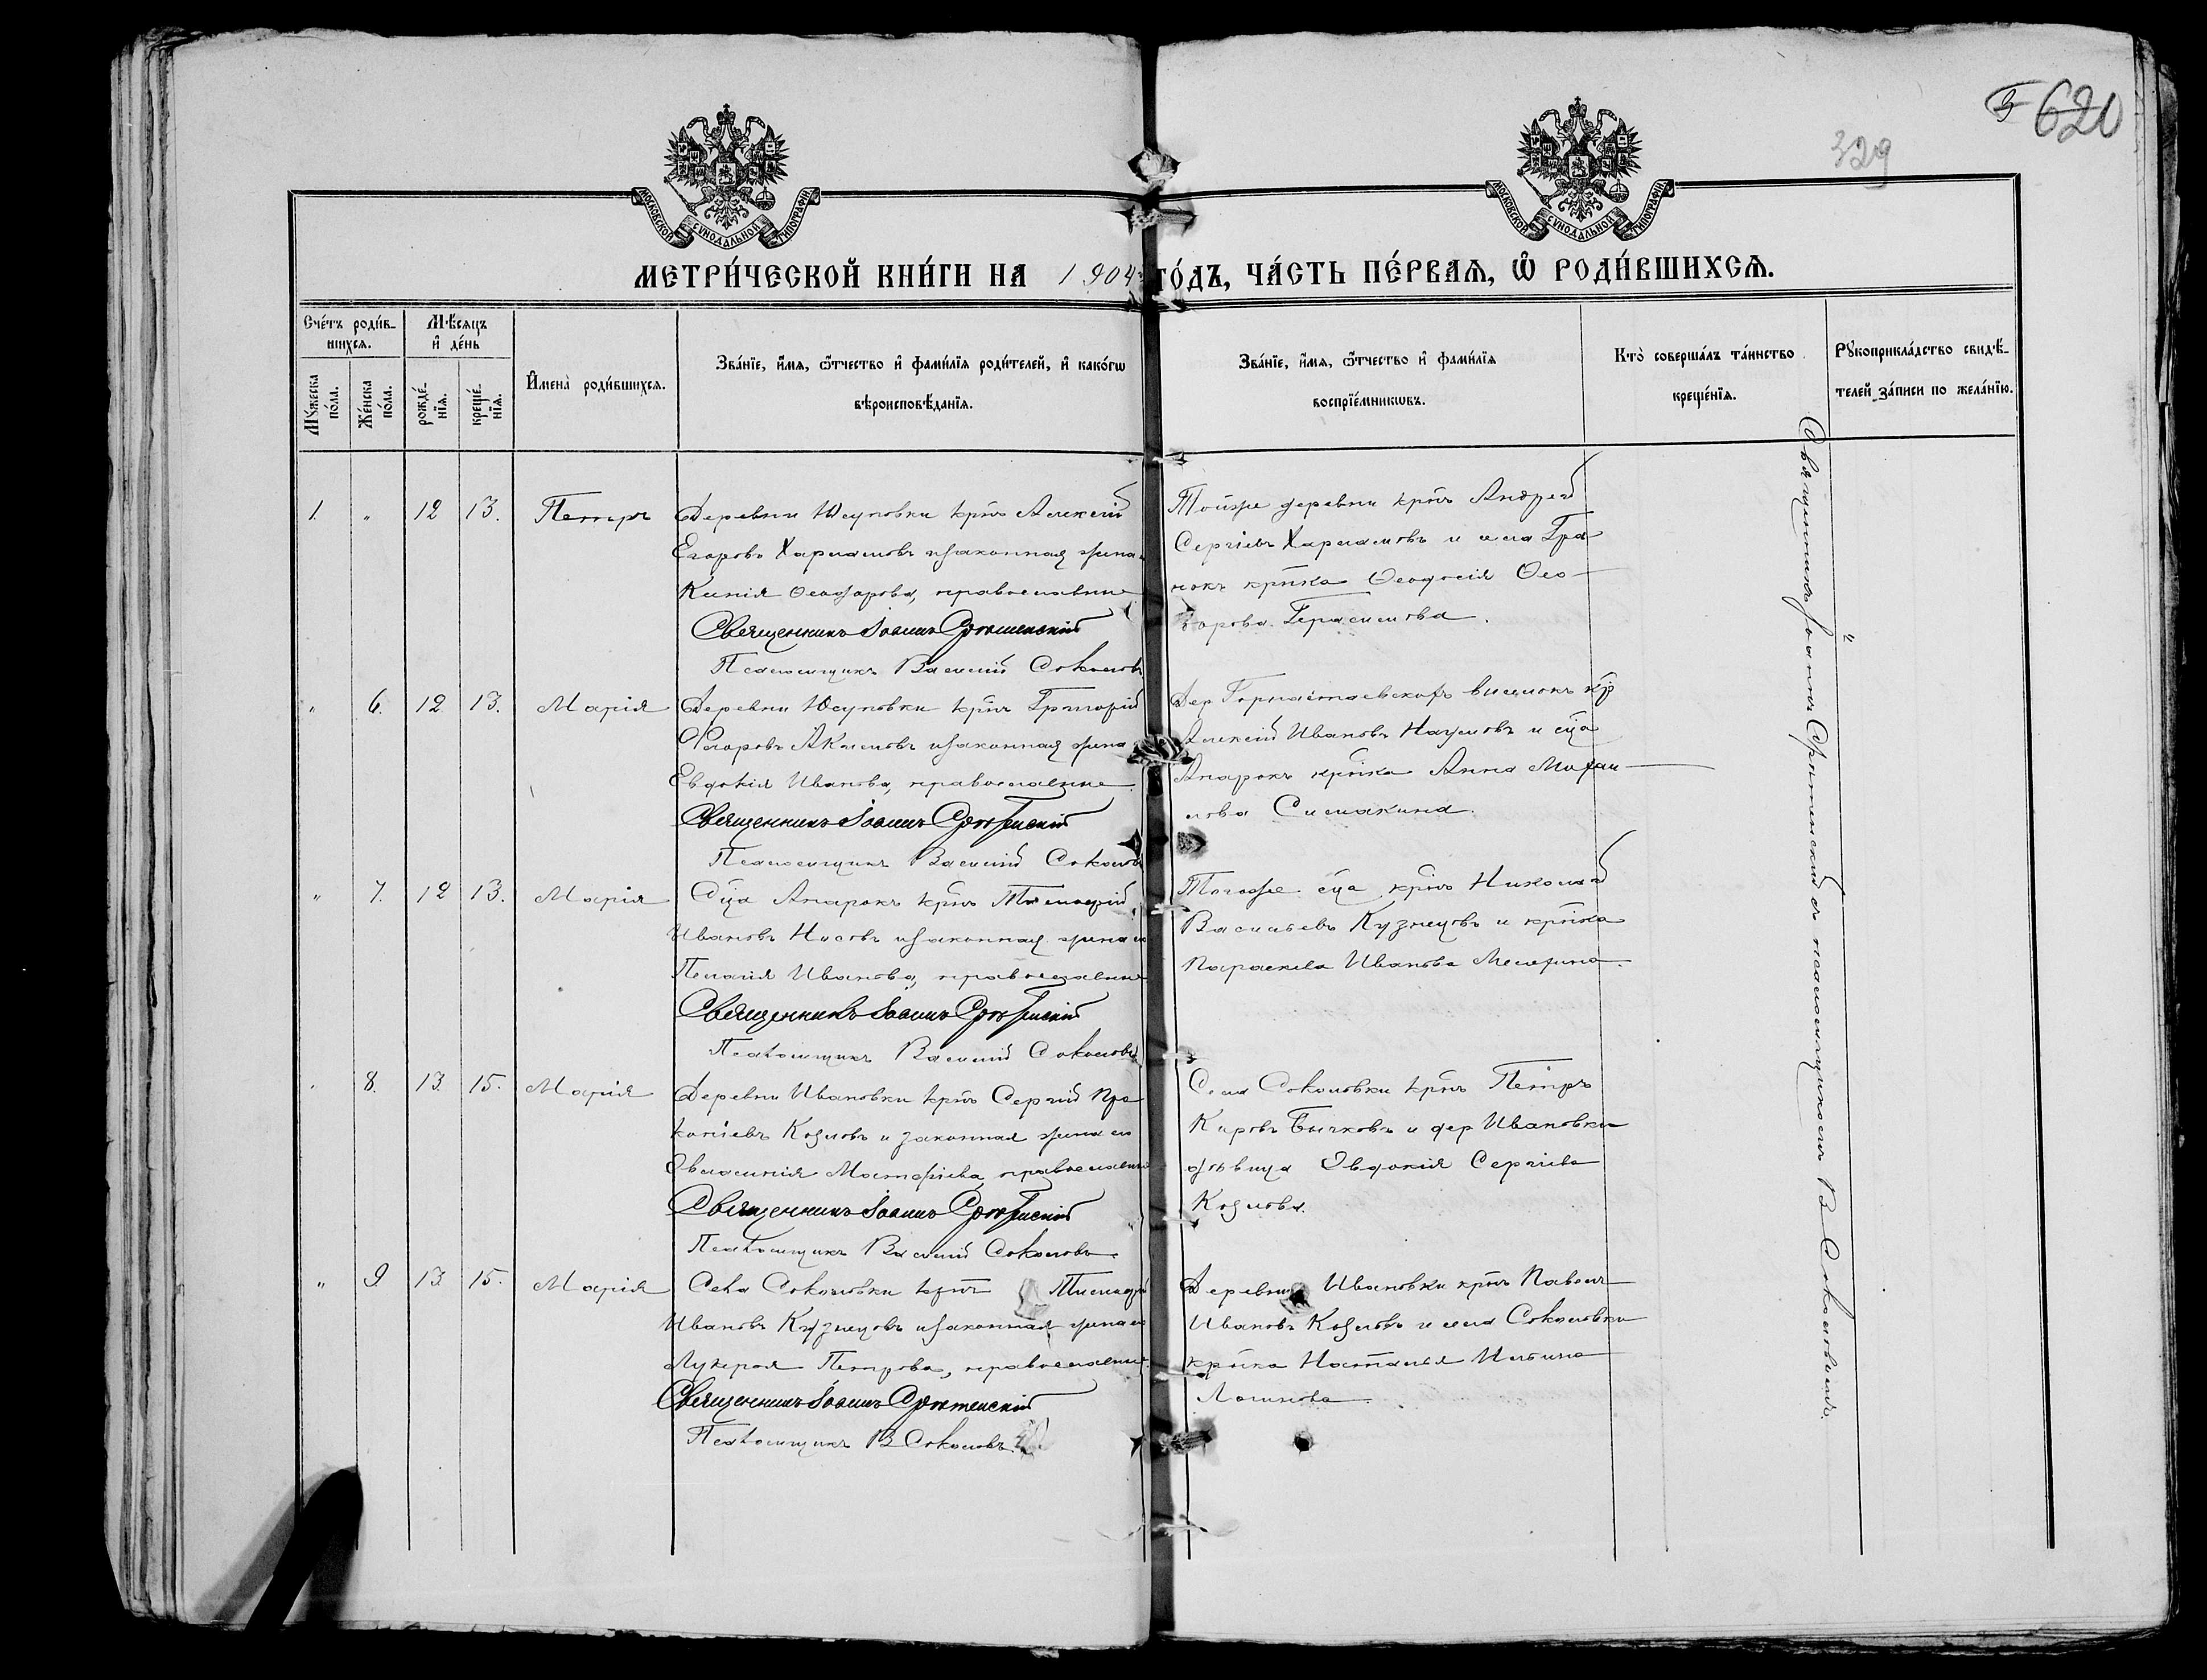 620
329
МОСКОВСКОЙ СѴНОДАЛЬНОЙ ТИПОГРАФІИ
МОСКОВСКОЙ СѴНОДАЛЬНОЙ ТИПОГРАФІИ
МЕТРИ́ЧЕСКОЙ КНИ́ГИ НА 1904 ГО́ДЪ, ЧА́СТЬ ПЕ́РВАѦ, Ѽ РОДИ́ВШИХСѦ.
Сче́тъ роди́в-
шихсѧ.
Мѣ́сяцъ
и҆ де́нь
Мꙋ́жеска
по́ла.
Же́нска
по́ла.
рожде́-
нїѧ.
креще́-
нїѧ.
И҆мена̀ роди́вшихсѧ.
Зва́нїе, и҆́мѧ, ѻ҆́тчество и҆ фами́лїѧ роди́телей, и҆ како́гѡ
вѣроисповѣ́данїѧ.
Зва́нїе, и҆́мѧ, ѻ҆́тчество и҆ фами́лїѧ
воспрїе́мникѡвъ.
Кто̀ соверша́лъ та́инство
креще́нїѧ.
Рꙋкоприкла́дство свидѣ́-
телей за́писи по жела́нїю.
1. " 12 13. Петръ
Деревни Юсуповки крнъ Алексѣй
Егоровъ Харламовъ и законная жена
Ксенія Ѳеодорова, православные
Священникъ Іоаннъ Срѣтенскій
Псаломщикъ Василій Соколовъ
Тойже деревни крнъ Андрей
Сергіевъ Харламовъ и села
крнка Ѳеодосія Ѳео-
дорова Герасимова.
" 6. 12. 13. Марія
Деревни Юсуповки крнъ Григорій
Акимовъ и законная жена
Евдокія Иванова, православные.
Священникъ Іоаннъ Срѣтенскій
Псаломщикъ Василій Соколовъ
Дер выселокъ кр
Алексѣй Ивановъ Наумовъ и сца
Апарокъ крнка Анна Михаи-
лова Симакина.
" 7. 12 13. Марія
Сца Апарокъ крнъ Тимоѳей
Ивановъ Носовъ и законная жена его
Пелагія Иванова, православные
Священникъ Іоаннъ Срѣтенскій
Псаломщикъ Василій Соколовъ
Тогоже сца крнъ Николай
Васильевъ Кузнецовъ и крнка
Параскева Иванова
" 8. 13. 15. Марія
Деревни Ивановки крнъ Сергій Про
копіевъ Козловъ и законная жена его
православные
Священникъ Іоаннъ Срѣтенскій
Псаломщикъ Василій Соколовъ
Села Соколовки крнъ Петръ
Кировъ Бычковъ и дер Ивановки
дѣвица Евдокія Сергіева
Козлова.
" 9 13 15. Марія
Села Соколовки крнъ Тимоѳей
Ивановъ Кузнецовъ и законная жена его
Лукерья Петрова, православные.
Священникъ Іоаннъ Срѣтенскій
Псаломщикъ В Соколовъ
Деревни Ивановки крнъ Павелъ
Ивановъ Козловъ и села Соколовки
крнка Наталья Ильина
Священникъ Іоаннъ Срѣтенскій съ псаломщикомъ В Соколовымъ.